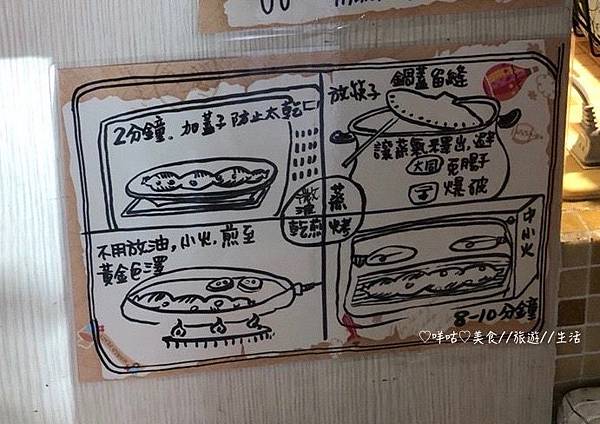 2分鐘。加蓋子防止太乾
放筷子
鍋蓋留縫
讓蒸氣釋出,避
免腸子
爆破
微波
蒸
乾煎
烤
不用放油,小火,煎至
黃金色澤
中小火
8-10分鐘
♡咩咕♡美食//旅遊//生活